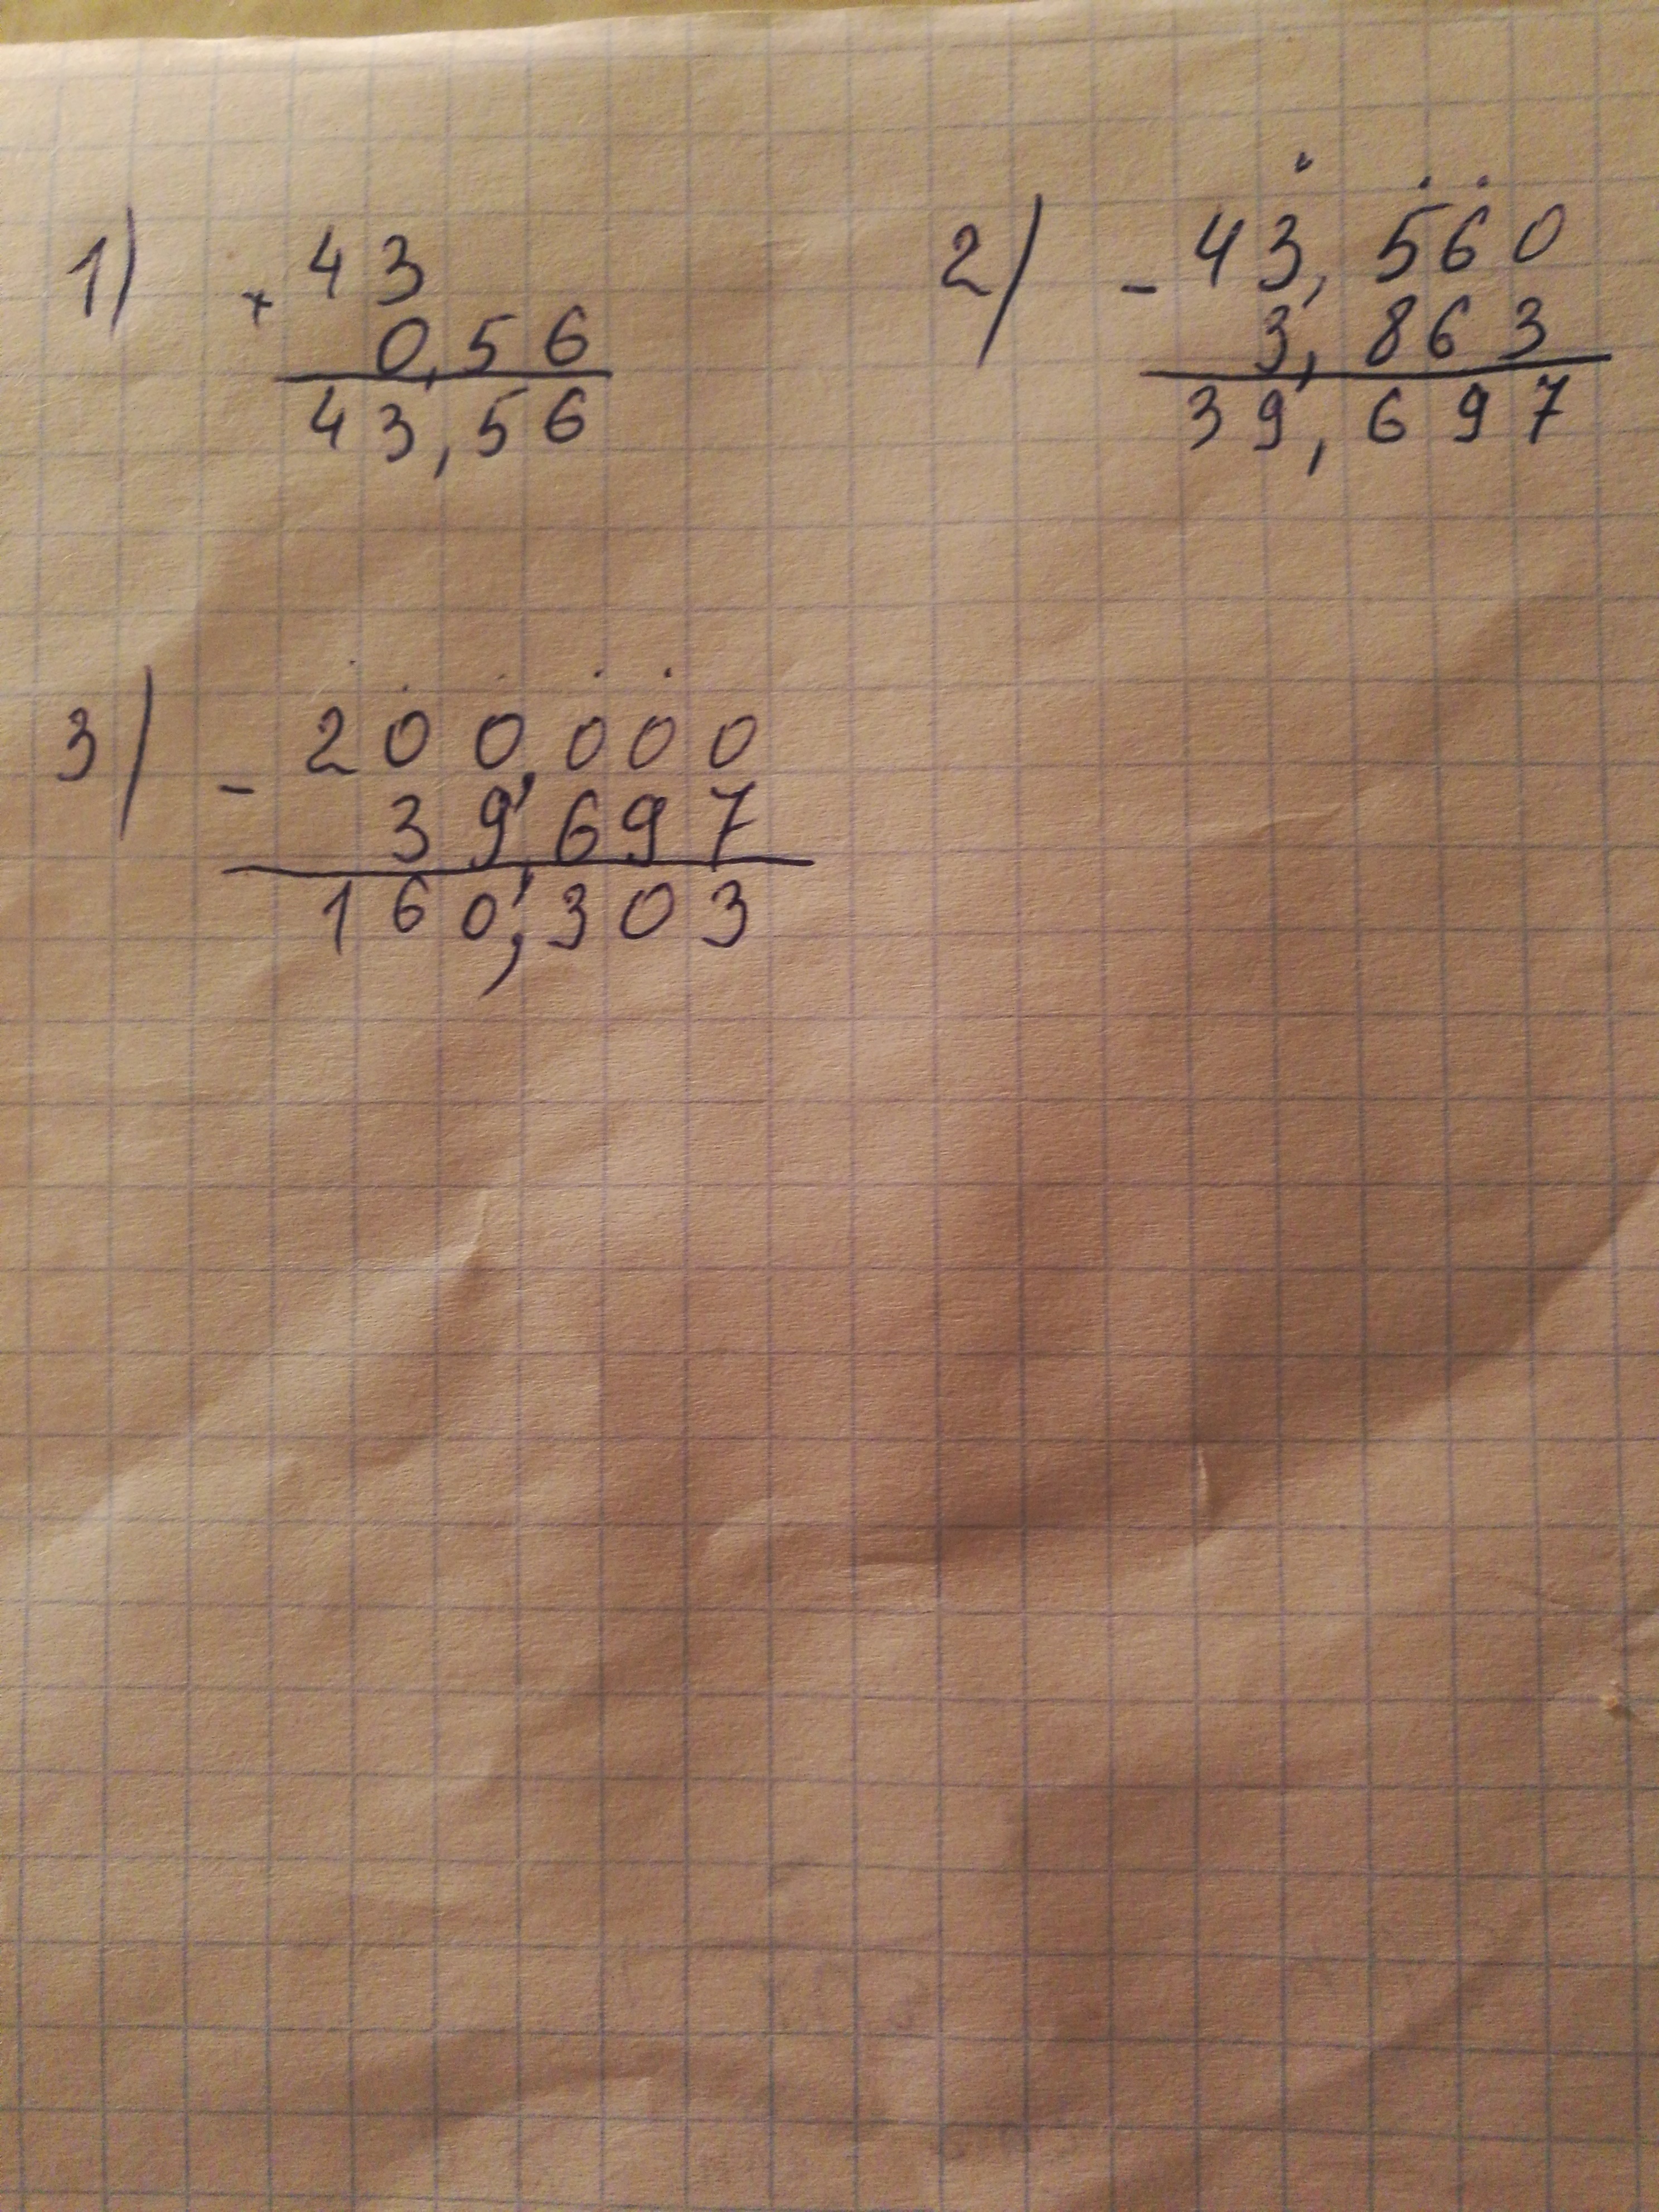 1) × 43
0,56
43,56
2) - 43,560
3,863
39,697
3) - 200,000
39,697
160,303